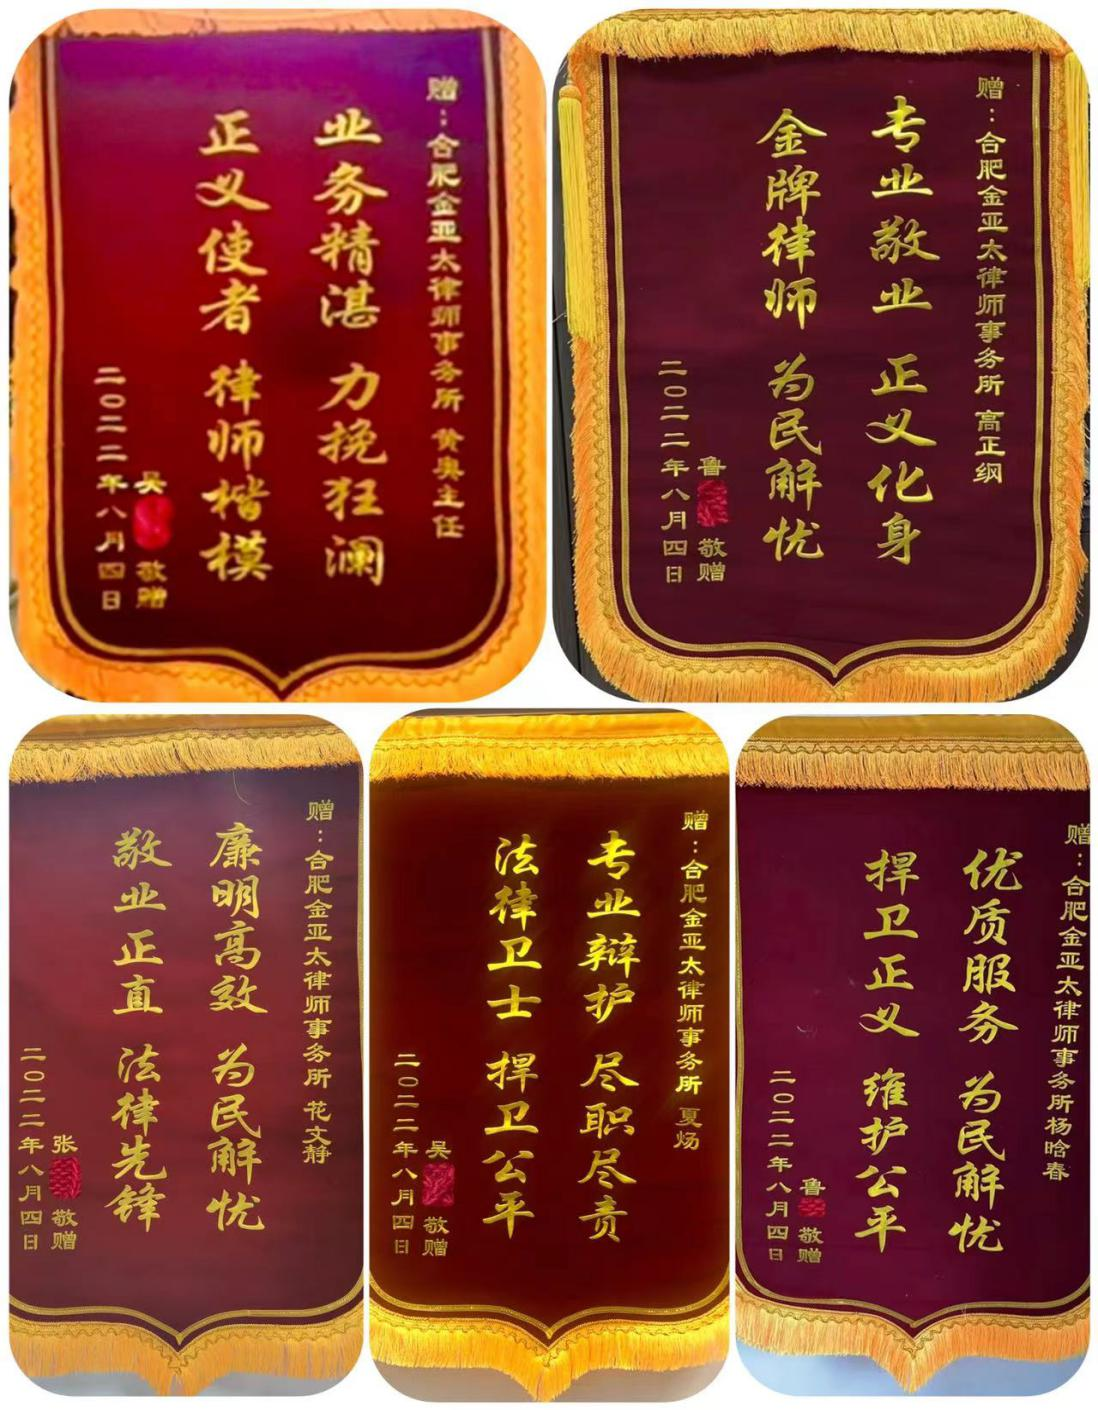 赠：合肥金亚太律师事务所 黄奥主任
业务精湛 力挽狂澜
正义使者 律师楷模
吴 敬赠
二〇二二年八月四日
赠：合肥金亚太律师事务所 高正纲
专业敬业 正义化身
金牌律师 为民解忧
鲁 敬赠
二〇二二年八月四日
赠：合肥金亚太律师事务所 花文静
廉明高效 为民解忧
敬业正直 法律先锋
张 敬赠
二〇二二年八月四日
赠：合肥金亚太律师事务所 夏炀
专业辩护 尽职尽责
法律卫士 捍卫公平
吴 敬赠
二〇二二年八月四日
赠：合肥金亚太律师事务所杨晗春
优质服务 为民解忧
捍卫正义 维护公平
鲁 敬赠
二〇二二年八月四日